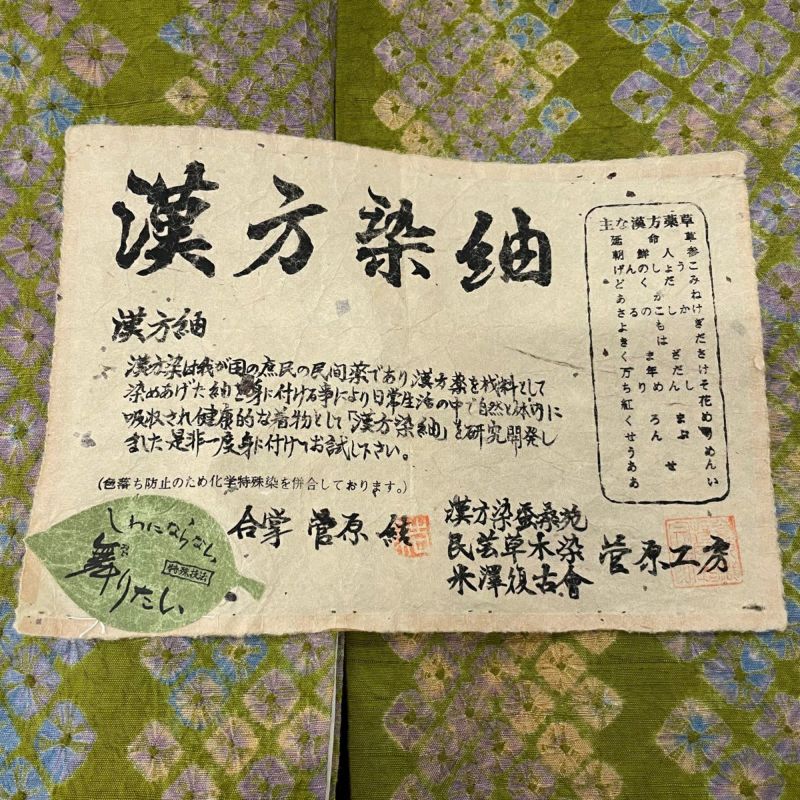 漢方染紬
漢方紬
漢方染は我が国の庶民の民間薬であり漢方薬を材料として
染めあげた紬を身に付ける事により日常生活の中で自然と体内に
吸収され健康的な着物として「漢方染紬」を研究開発し
ました是非一度身に付けてお試し下さい。
(色落ち防止のため化学特殊染を併合しております。)
合掌 菅原 結
漢方染蚕桑苑
民芸草木染
米澤復古會
菅原工房
主な漢方薬草
延命草
朝鮮人参
げんのしょうこ
どくだみ
あかね
さるのこしかけ
よもぎ
きはだ
くまざさ
万年だけ
ちりめんじそ
紅花
くろまめ
せんぶり
うめ
あせん
あい
しわにならない
特殊技法